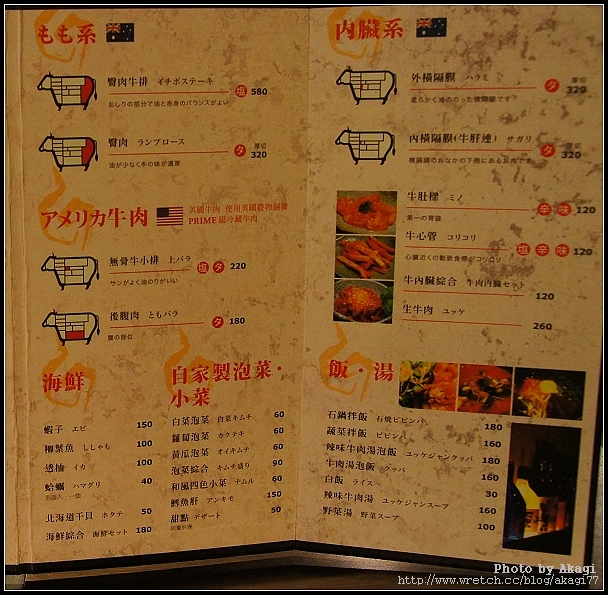 もも系
臀肉牛排 イチボステーキ
塩 580
おしりの部分で油と赤身のバランスがよい
臀肉 ランプロース
タ 厚切 320
油が少なく牛の味が濃厚
アメリカ牛肉
美國牛肉 使用美國穀物飼養
PRIME級冷藏牛肉
無骨牛小排 上バラ
塩 タ 220
サシがよく油のりがいい
後腹肉 ともバラ
タ 180
腹の部位
海鮮
蝦子 エビ 150
柳葉魚 ししゃも 100
透抽 イカ 100
蛤蠣 ハマグリ 40
北海道干貝 ホタテ 50
海鮮綜合 海鮮セット 180
自家製泡菜・
小菜
白菜泡菜 白菜キムチ 60
蘿蔔泡菜 カクテキ 60
黃瓜泡菜 オイキムチ 60
泡菜綜合 キムチ盛り 90
和風四色小菜 ナムル 60
鱈魚肝 アンキモ 150
甜點 デザート 50
內臟系
外橫隔膜 ハラミ
タ 厚切 320
柔らかく油ののった横隔膜です
內橫隔膜(牛肝連) サガリ
タ 厚切 320
牛肚樑 ミノ
辛 味 120
第一の胃袋
牛心管 コリコリ
塩 辛 味 120
心臓近くの動脈食感がコリコリ
牛內臟綜合 牛肉内臓セット
120
生牛肉 ユッケ
260
飯・湯
石鍋拌飯 石焼ビビンバ 180
蔬菜拌飯 ビビンバ 160
辣味牛肉湯泡飯 ユッケジャンクッパ 180
牛肉湯泡飯 クッパ 160
白飯 ライス 30
辣味牛肉湯 ユッケジャンスープ 160
野菜湯 野菜スープ 100
Photo by Akagi
http://www.wretch.cc/blog/akagi77